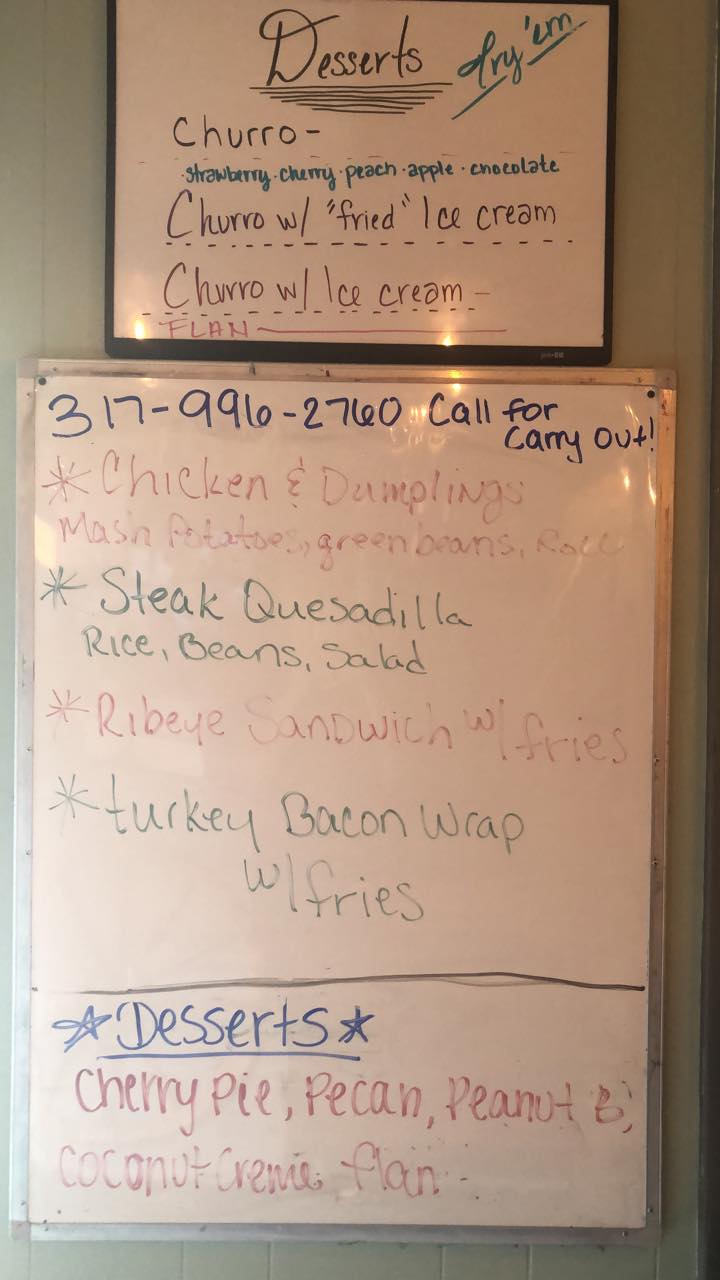 Desserts try'em
Churro-
·strawberry·cherry·peach·apple·chocolate
Churro w/ "fried" Ice cream
Churro w/ Ice cream -
FLAN
317-996-2760 Call for
Carry Out!
* Chicken & Dumplings
Mash Potatoes, green beans, Roll
* Steak Quesadilla
Rice, Beans, Salad
* Ribeye Sandwich w/ fries
* turkey Bacon Wrap
w/ fries
☆ Desserts ☆
Cherry Pie, Pecan, Peanut B,
Coconut Creme, flan